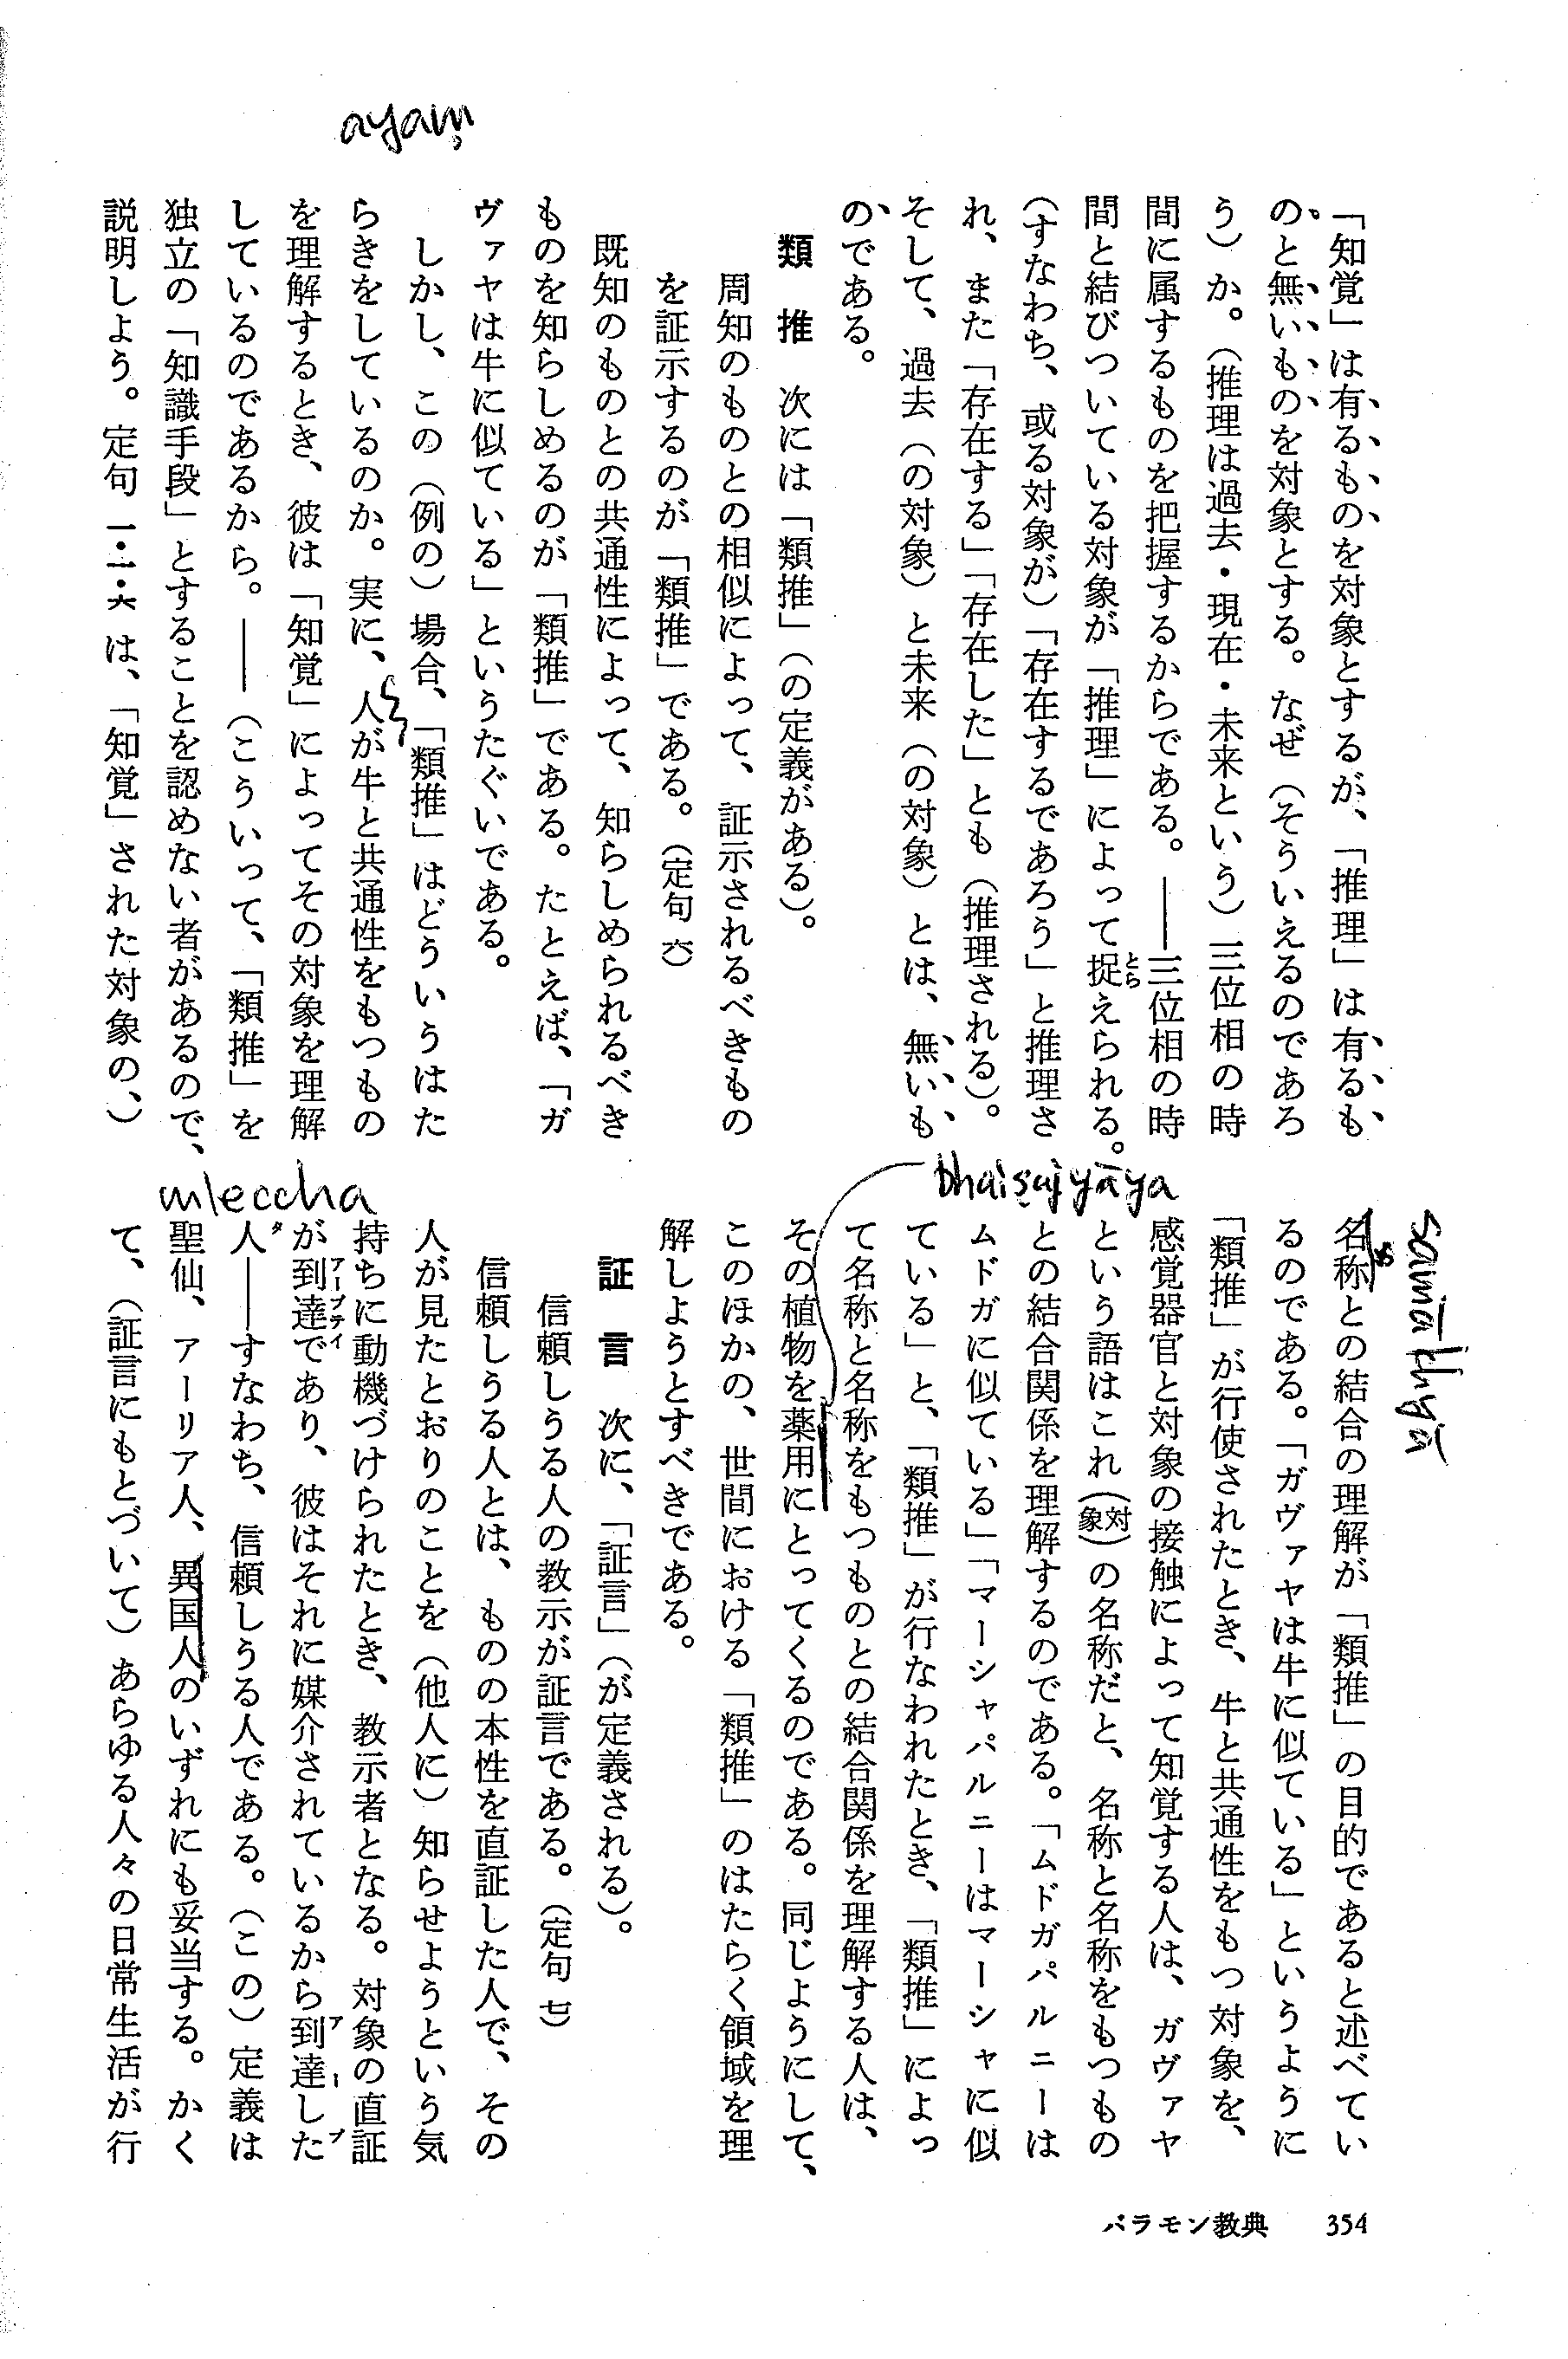 ayaṃ
「知覚」は有るものを対象とするが、「推理」は有るも
のと無いものを対象とする。なぜ（そういえるのであろ
う）か。（推理は過去・現在・未来という）三位相の時
間に属するものを把握するからである。――三位相の時
間と結びついている対象が「推理」によって捉えられる。
とら
（すなわち、或る対象が）「存在するであろう」と推理さ
れ、また「存在する」「存在した」とも（推理される）。
そして、過去（の対象）と未来（の対象）とは、無いも
のである。
類　推　次には「類推」（の定義がある）。
周知のものとの相似によって、証示されるべきもの
を証示するのが「類推」である。（定句 六）
既知のものとの共通性によって、知らしめられるべき
ものを知らしめるのが「類推」である。たとえば、「ガ
ヴァヤは牛に似ている」というたぐいである。
しかし、この（例の）場合、「類推」はどういうはた
らきをしているのか。実に、人が牛と共通性をもつもの
を理解するとき、彼は「知覚」によってその対象を理解
しているのであるから。――（こういって、「類推」を
独立の「知識手段」とすることを認めない者があるので、
説明しよう。定句 一・一・六 は、「知覚」された対象の、）
samākhyā
名称との結合の理解が「類推」の目的であると述べてい
るのである。「ガヴァヤは牛に似ている」というように
「類推」が行使されたとき、牛と共通性をもつ対象を、
感覚器官と対象の接触によって知覚する人は、ガヴァヤ
という語はこれ（対象）の名称だと、名称と名称をもつもの
との結合関係を理解するのである。「ムドガパルニーは
ムドガに似ている」「マーシャパルニーはマーシャに似
ている」と、「類推」が行なわれたとき、「類推」によっ
て名称と名称をもつものとの結合関係を理解する人は、
その植物を薬用にとってくるのである。同じようにして、
bhaiṣajyāya
このほかの、世間における「類推」のはたらく領域を理
解しようとすべきである。
証　言　次に、「証言」（が定義される）。
信頼しうる人の教示が証言である。（定句 七）
信頼しうる人とは、ものの本性を直証した人で、その
人が見たとおりのことを（他人に）知らせようという気
持ちに動機づけられたとき、教示者となる。対象の直証
が到達であり、彼はそれに媒介されているから到達した
アープティ
アープタ
人――すなわち、信頼しうる人である。（この）定義は
聖仙、アーリア人、異国人のいずれにも妥当する。かく
mleccha
て、（証言にもとづいて）あらゆる人々の日常生活が行
バラモン教典　354